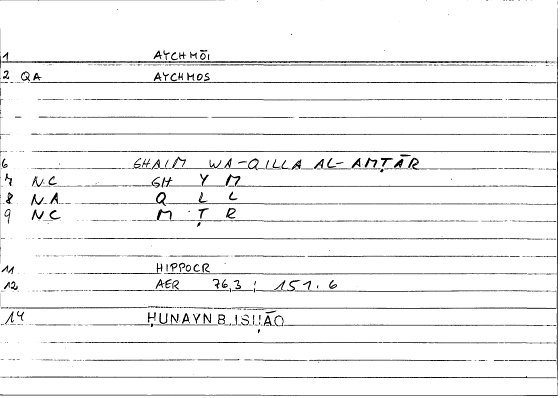 1 AYCHMŌI
2 QA AYCHMOS
6 GHAIM WA-QILLA AL-AMṬĀR
7 NC GH Y M
8 NA Q L L
9 NC M Ṭ R
11 HIPPOCR
12 AER 76,3 ; 151.6
14 ḤUNAYN B. ISḤĀQ